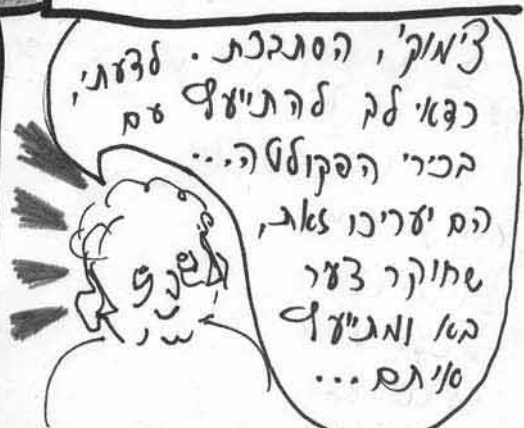 צ'מוק', הסתבכת. לדעתי,
כדאי לך להתייעץ עם
בכירי הפקולטה...
הם יעריכו זאת,
שחוקר צעיר
בא ומתייעץ
איתם...